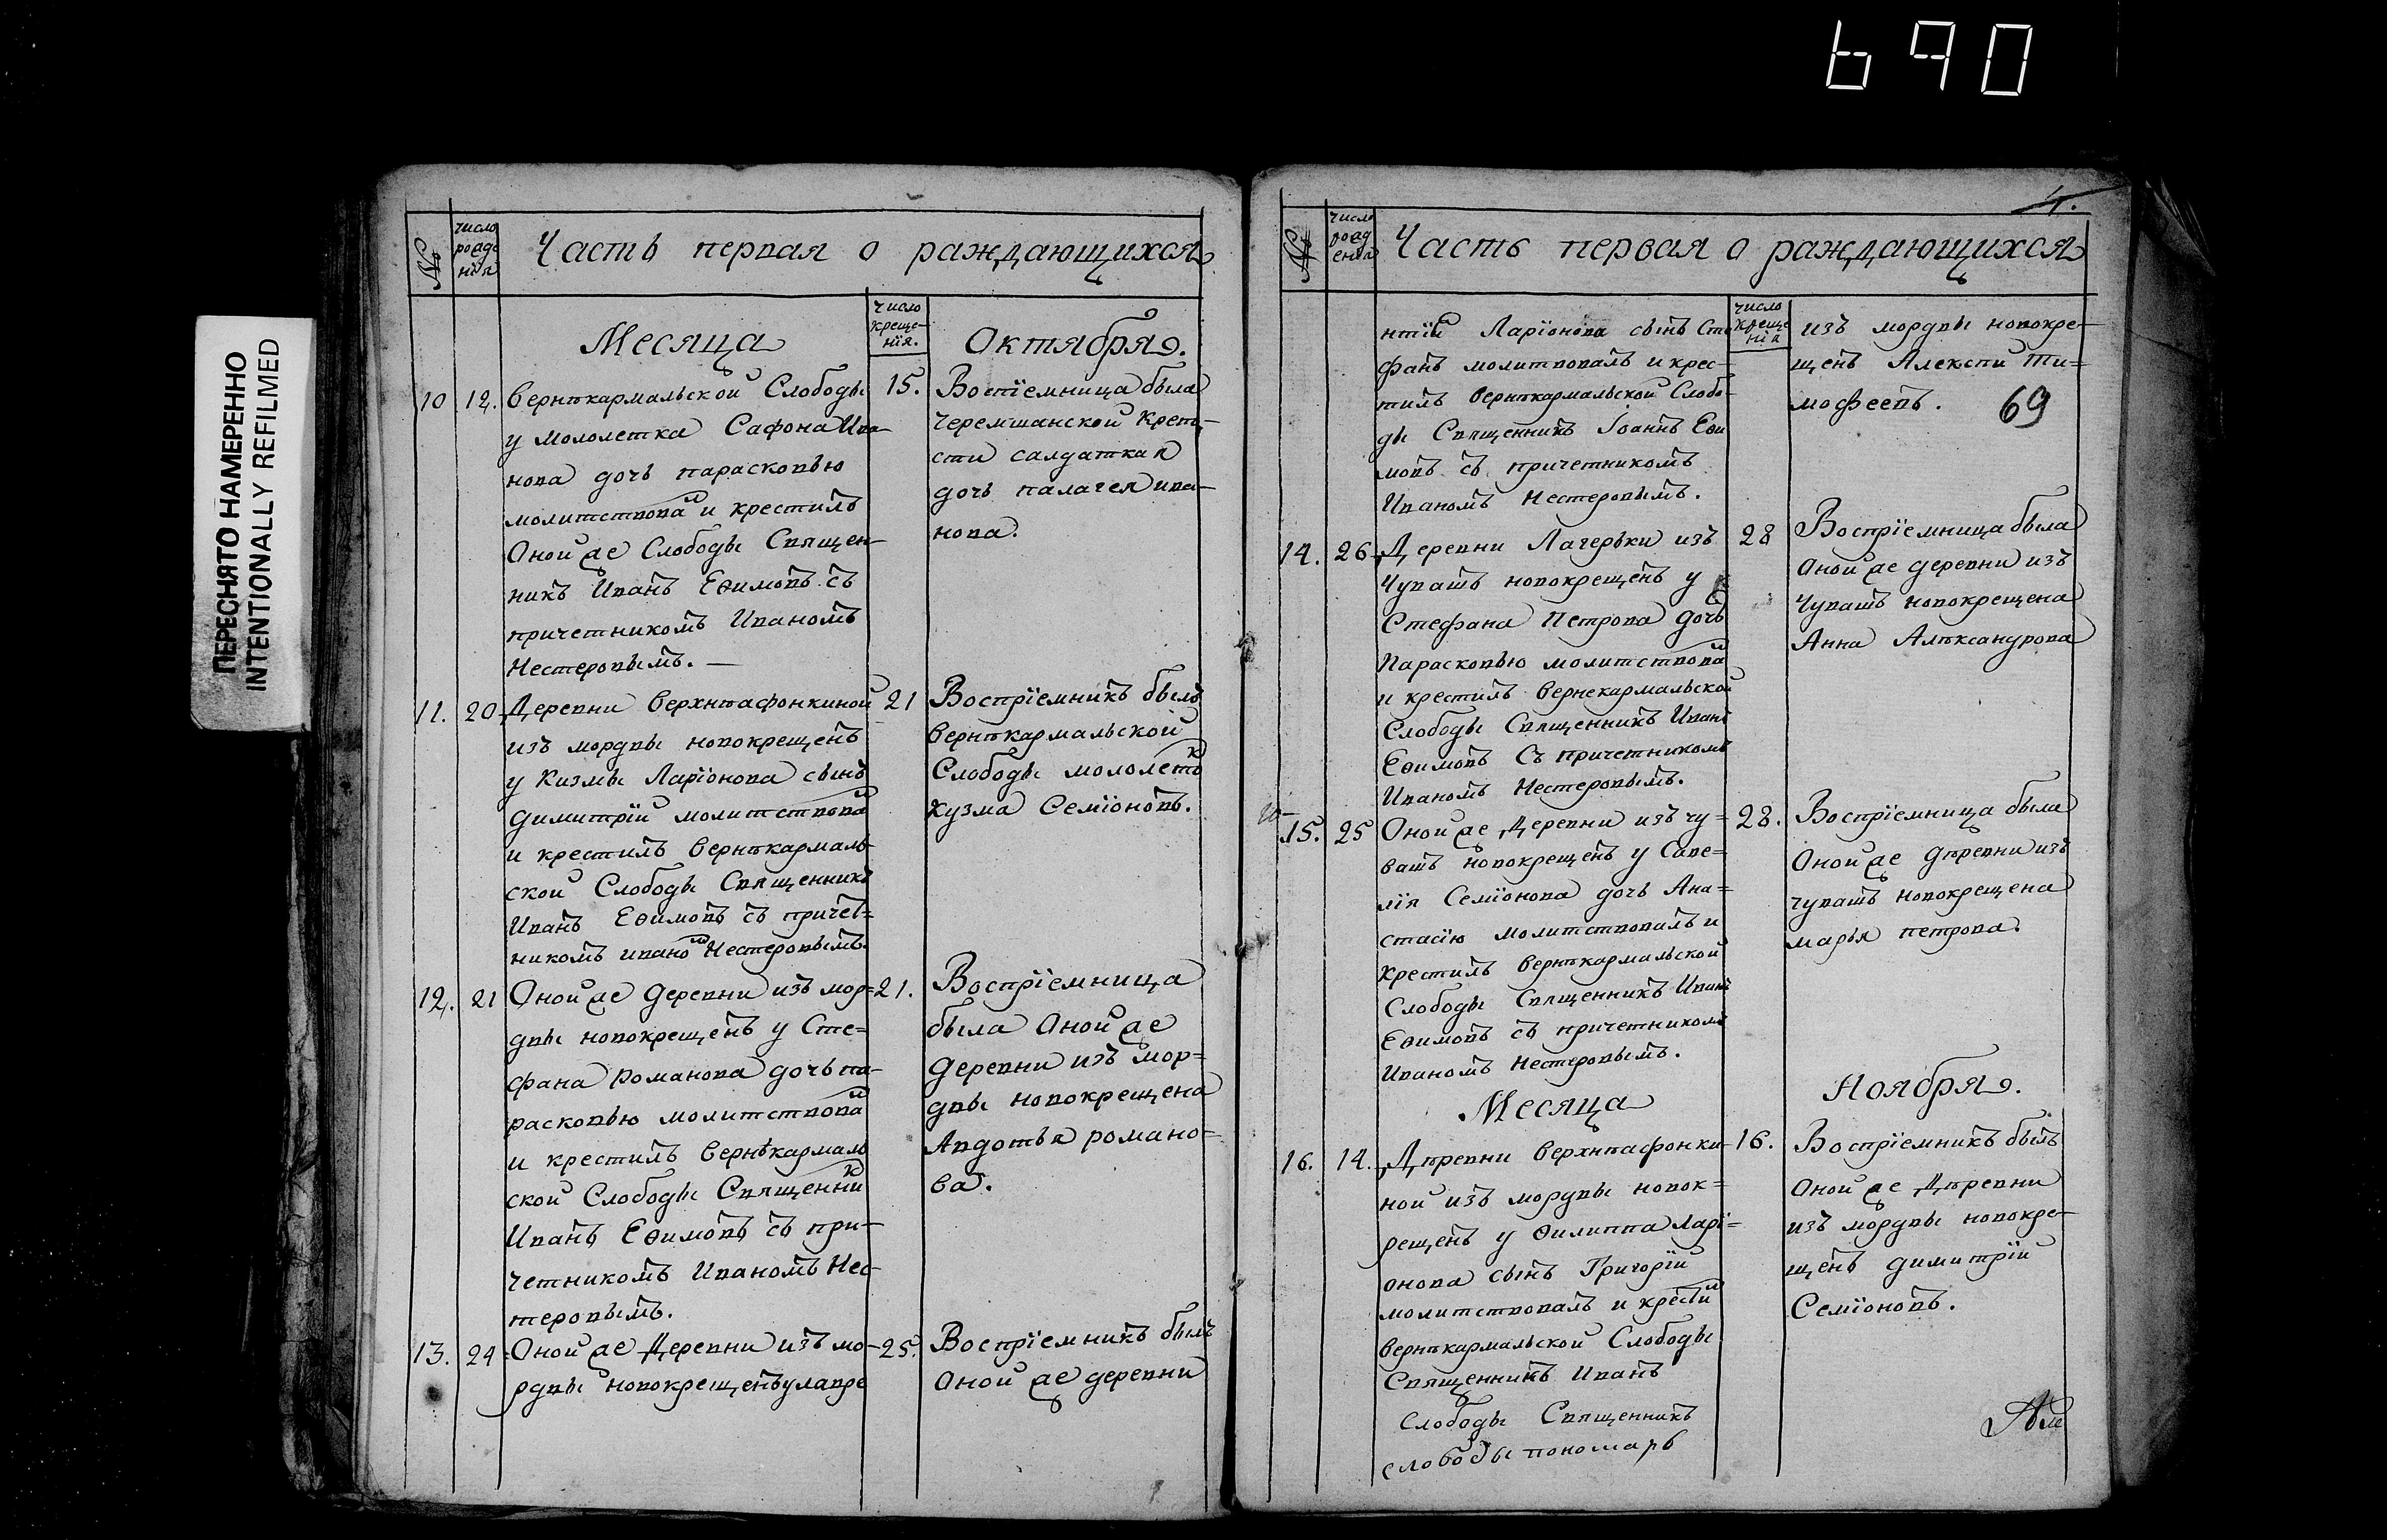 690
ПЕРЕСНЯТО НАМЕРЕННО
INTENTIONALLY REFILMED
№
число
рождє
нїя
Часть первая о раждающихся
Месяца
число
креще-
нїя.
Октября.
10
12.
Вернѣкармальской Слободы
у мололетка Сафона Ива-
нова дочь параскопью
молитствова и крестилъ
Оной же Слободы Священ-
никъ Иванъ Еѳимовъ съ
причетникомъ Иваномъ
Нестеровымъ. —
15.
Востїемница была
Черемшанской Крепо-
сти салдатка я
дочь палагея ива-
нова.
11.
20
Деревни Верхнѣафонкиной
изъ мордвы новокрещенъ
у Кизмы Ларїонова сынъ
Димитрїй молитствова
и крестилъ Вернѣкармаль-
ской Слободы Священникъ
Иванъ Еѳимовъ съ причет-
никомъ ивано Нестеровымъ.
21
Воспрїемникъ былъ
Вернѣкармальской
Слободы мололетокъ
Кузма Семїоновъ.
12.
21
Оной же Деревни изъ мор=
двы новокрещенъ у Сте=
фана Романова дочь па-
раскопью молитствова
и крестилъ Вернѣкармаль
ской Слободы Священни
Иванъ Еѳимовъ съ при-
четникомъ Иваномъ Нес-
теровымъ.
21.
Воспрїемница
была Оной же
Деревни изъ мор=
двы новокрещена
Авдотья романо=
ва.
13.
24
Оной же Деревни изъ мо-
рдвы новокрещенъ у лавре
25.
Воспрїемникъ былъ
Оной же деревни
4.
№
число
рожд
енїя
Часть первая о раждающихся
нтїй Ларїонова сынъ Сте
фанъ молитвовалъ и крес-
тилъ Вернѣкармальской Слобо-
ды Священникъ Іоаннъ Еѳи
мовъ съ причетникомъ
Иваномъ Нестеровымъ.
число
креще
нїя
изъ мордвы новокре-
щенъ Алексѣи Ти=
мофеевъ.
69
14.
26
Деревни Лагерьки изъ
Чувашъ новокрещенъ у
Стефана Петрова дочь
Параскопью молитствова
и крестилъ Вернекармальской
Слободы Священникъ Иванъ
Еѳимовъ Съ причетникомъ
Иваномъ Нестеровымъ.
28
Воспрїемница была
Оной же деревни изъ
Чувашъ новокрещена
Анна Алѣксанурова
15.
25
Оной же Деревни изъ чу=
вашъ новокрещенъ у Саве=
лїя Семїонова дочь Ана=
стасїю молитствовалъ и
крестилъ Вернѣкармальской
Слободы Священникъ Иванъ
Еѳимовъ съ причетникомъ
Иваномъ Нестеровымъ.
28.
Воспрїемница была
Оной же Дѣревни изъ
чувашъ новокрещена
марья петрова.
Месяца
Ноября.
16.
14.
Дѣревни Верхнѣафонки-
ной изъ мордвы новок=
рещенъ у Ѳилиппа Ларї=
онова сынъ Григорїй
молитствовалъ и крести
Вернѣкармальской Слободы
Священникъ Иванъ
16.
Воспрїемникъ былъ
Оной же Дѣревни
изъ мордвы новокре-
щенъ Димитрїй
Семїоновъ.
Слободы Священникъ
слободы пономарь